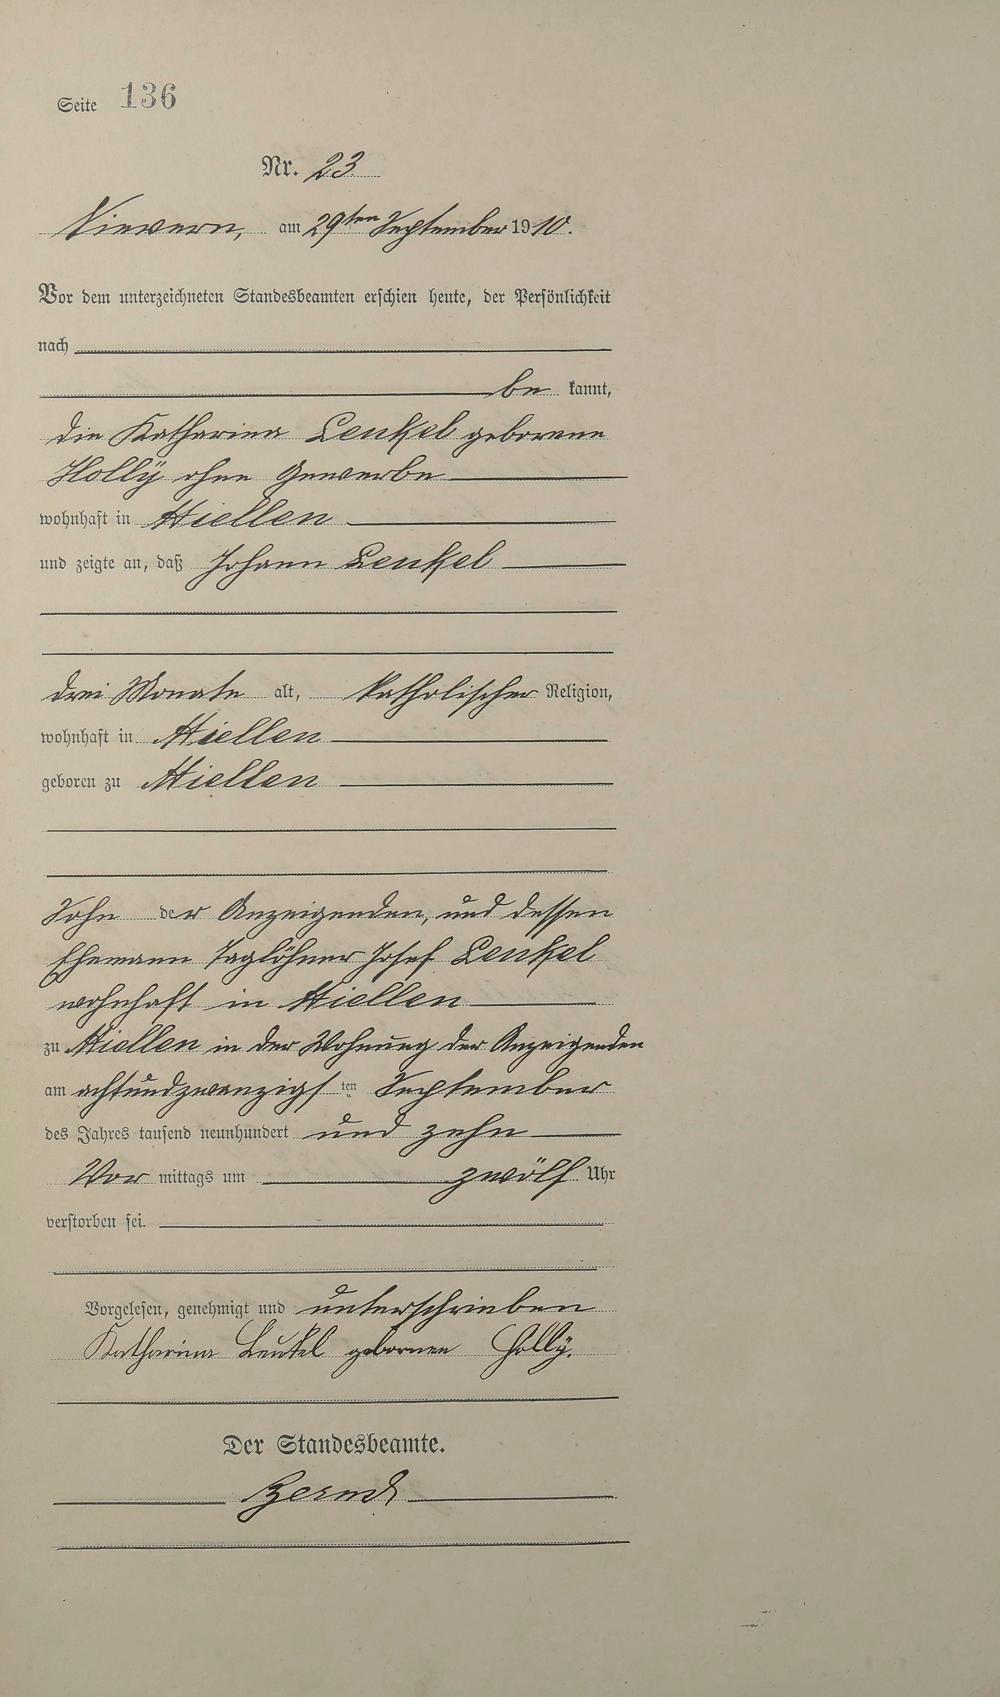 Seite 136
Nr. 23
Nievern, am 29ten September 1910.
Vor dem unterzeichneten Standesbeamten erschien heute, der Persönlichkeit
nach
be kannt,
die Katharina Leukel geborene
Holly ohne Gewerbe
wohnhaft in Miellen
und zeigte an, daß Johann Leukel
drei Monate alt, katholischer Religion,
wohnhaft in Miellen
geboren zu Miellen
Sohn der Anzeigenden, und dessen
Ehemann Taglöhner Josef Leukel
wohnhaft in Miellen
zu Miellen in der Wohnung der Anzeigenden
am achtundzwanzigsten September
des Jahres tausend neunhundert und zehn
Vor mittags um zwölf Uhr
verstorben sei.
Vorgelesen, genehmigt und unterschrieben
Katharina Leukel gebornen Holly.
Der Standesbeamte.